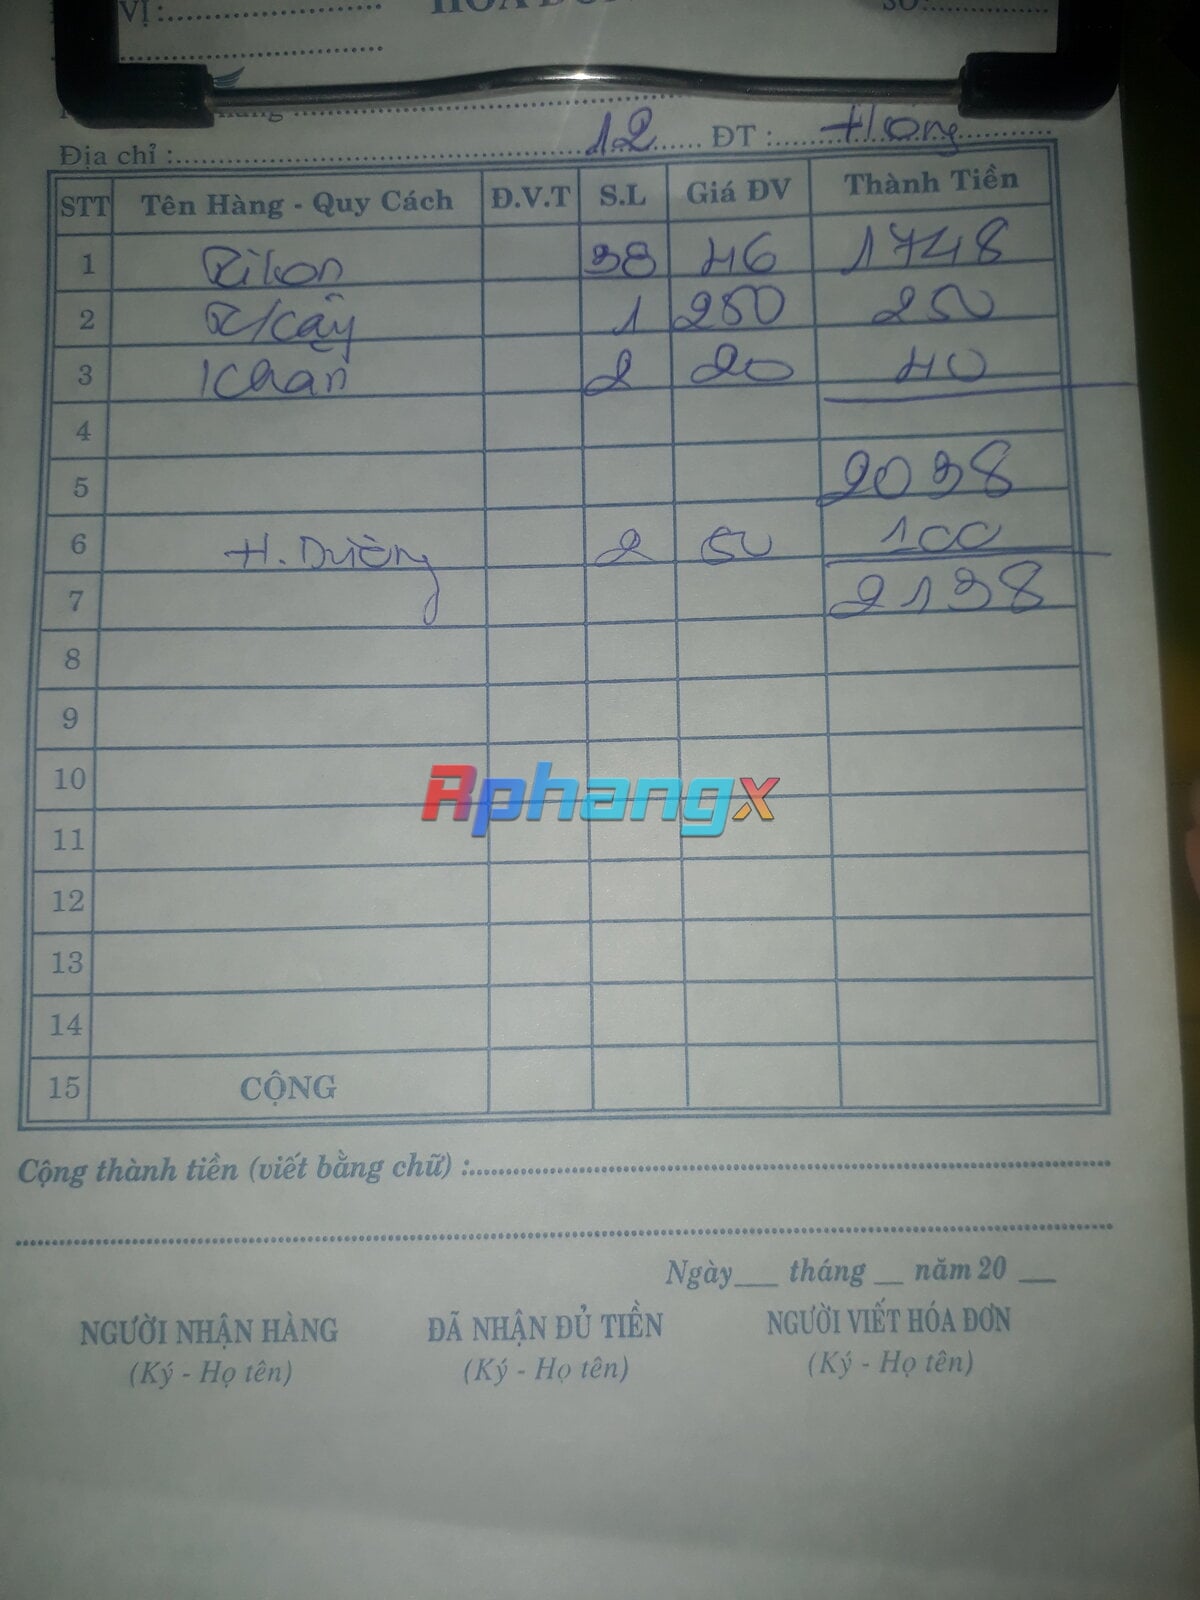 VỊ :
Địa chỉ : 12 ĐT : Hồng
STT Tên Hàng - Quy Cách Đ.V.T S.L Giá ĐV Thành Tiền
1 Riken 38 46 1748
2 1 250 250
3 Khăn 2 20 40
4
5 2038
6 H. Dường 2 50 100
7 2138
8
9
Rphangx
10
11
12
13
14
15 CỘNG
Cộng thành tiền (viết bằng chữ) :
Ngày___ tháng __ năm 20 __
NGƯỜI NHẬN HÀNG ĐÃ NHẬN ĐỦ TIỀN NGƯỜI VIẾT HÓA ĐƠN
(Ký - Họ tên) (Ký - Họ tên) (Ký - Họ tên)